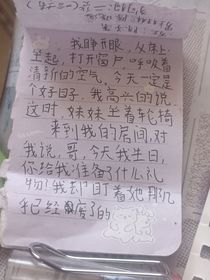 我睁开眼，从床上
坐起，打开窗户，呼吸着
清新的空气，今天一定是
个好日子。我高兴的说
这时 妹妹坐着轮椅
来到我的房间，对
我说，哥，今天我生日，
你给我准备了什么礼
物！我却盯着她那几
已经 废了的